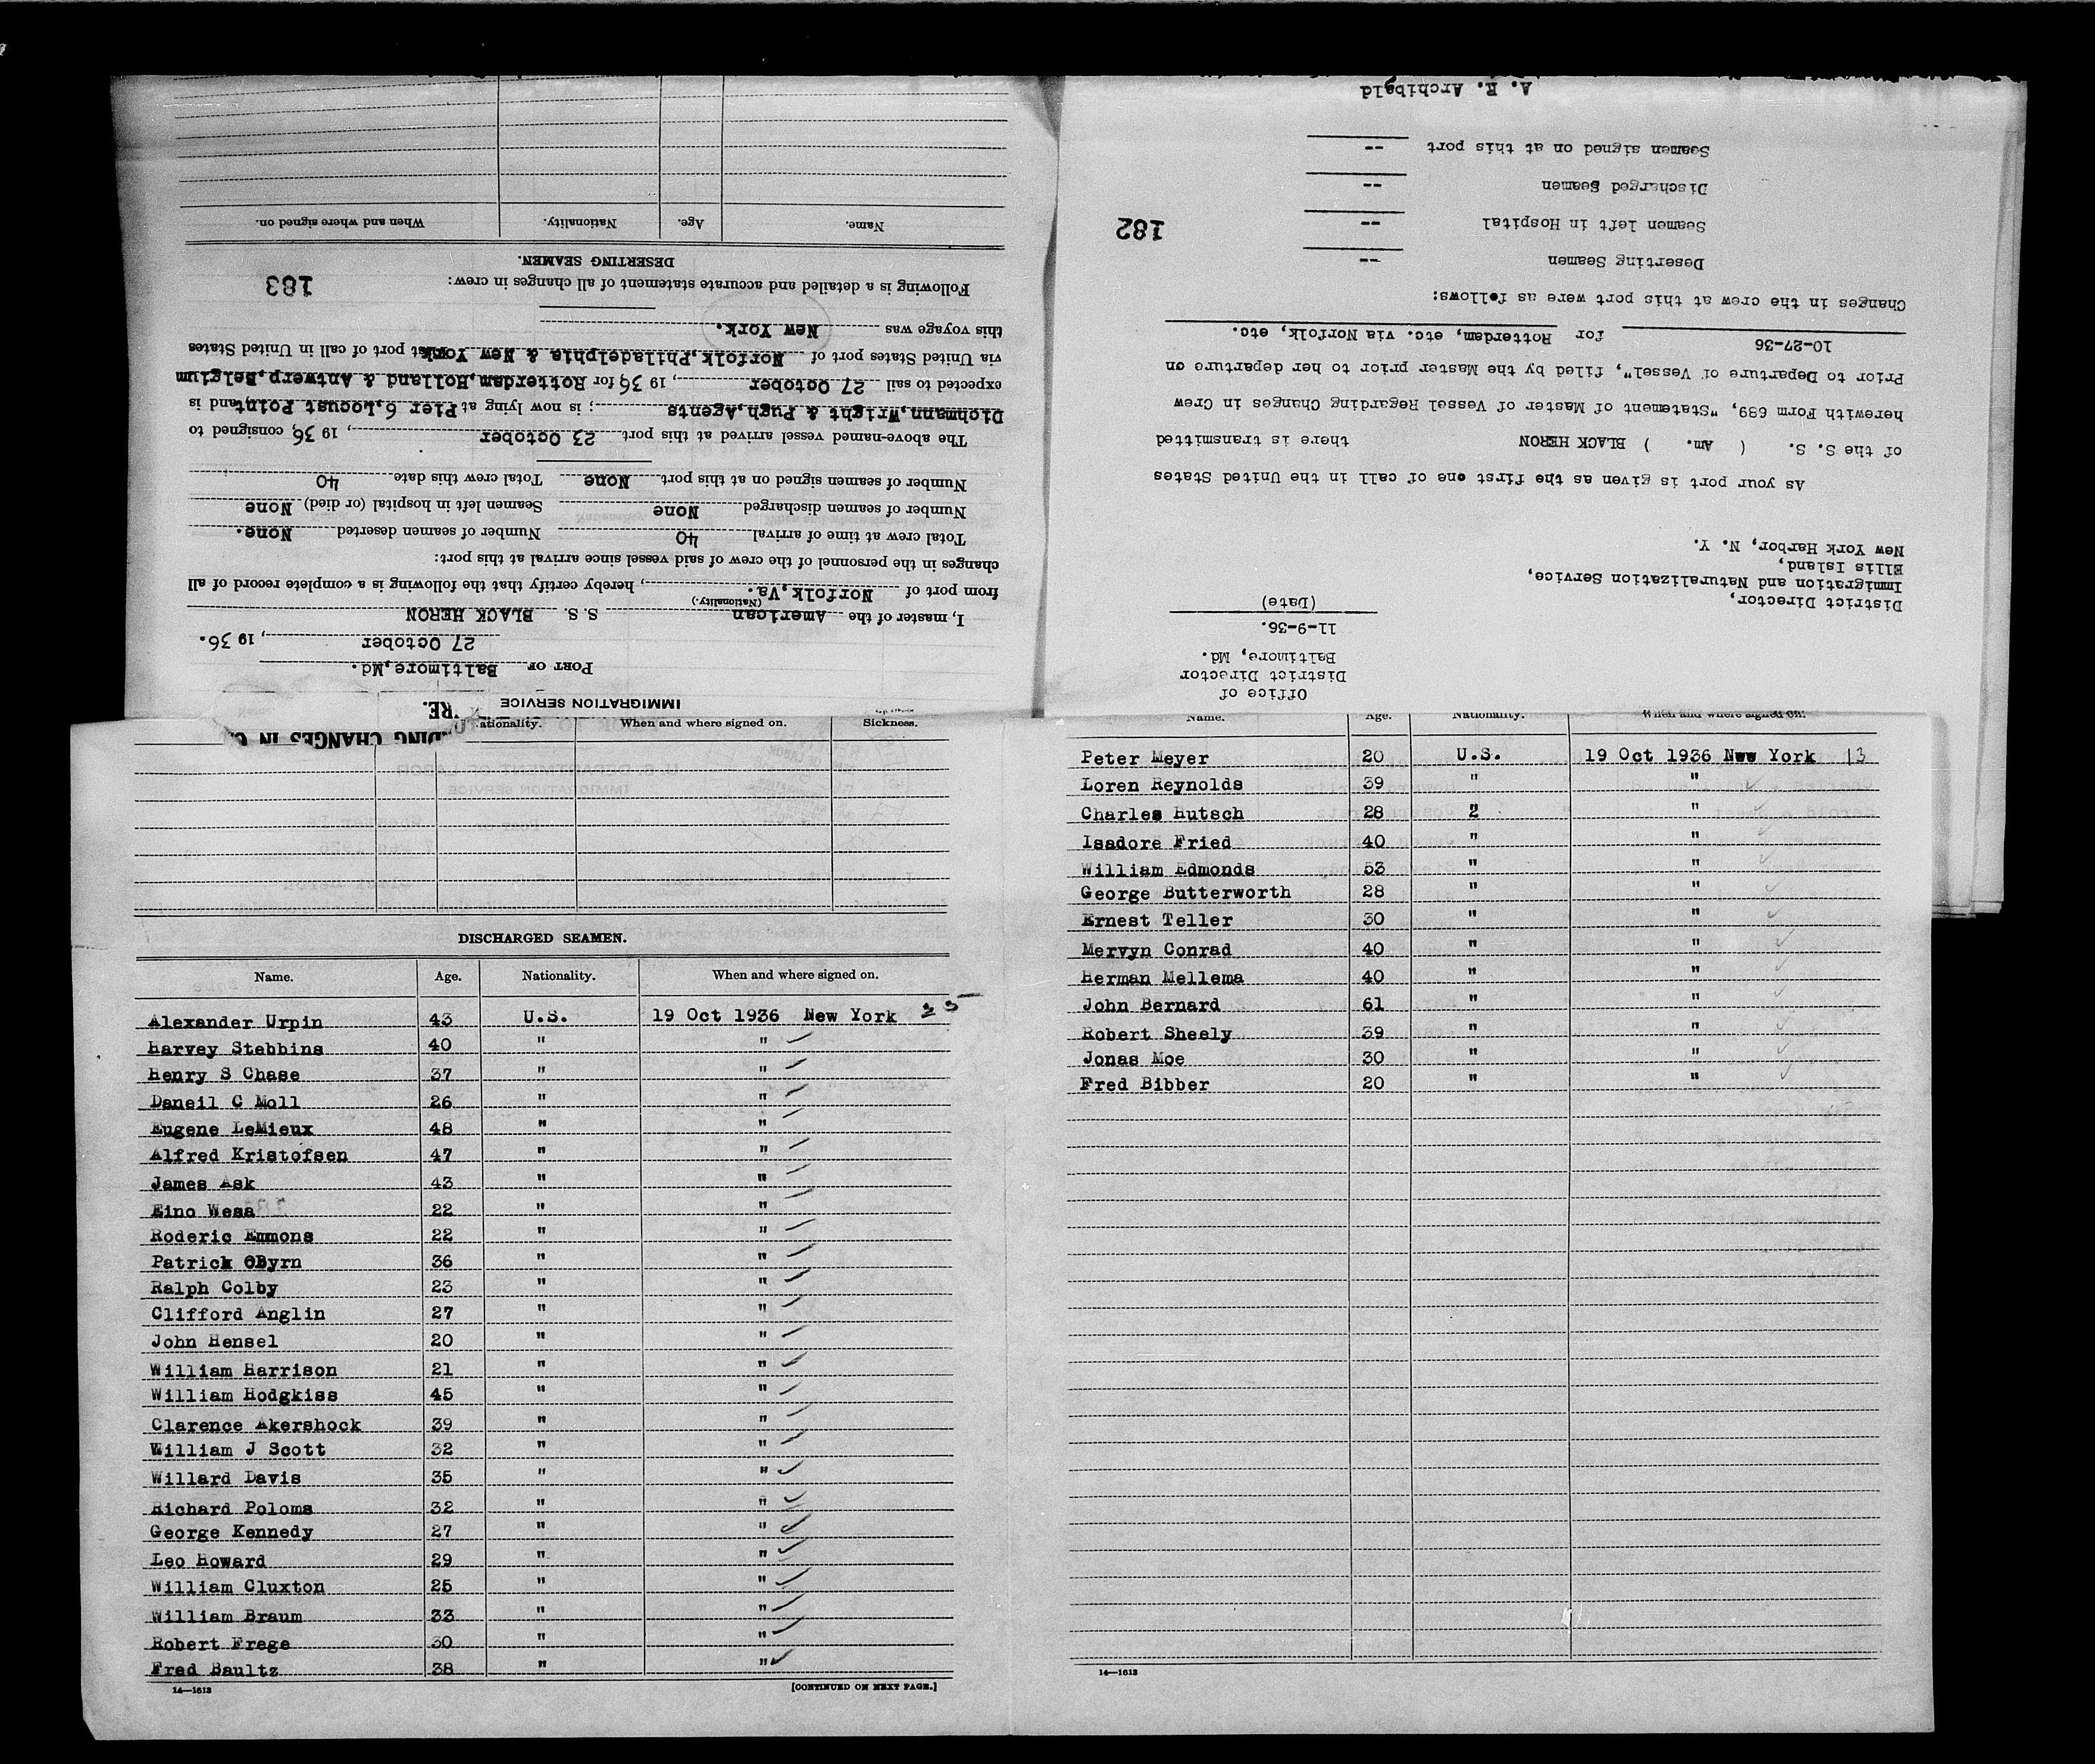 IMMIGRATION SERVICE
PORT OF Baltimore,Md.
27 October, 1936.
I, master of the American S.S. BLACK HERON
(Nationality.)
from port of Norfolk,Va., hereby certify that the following is a complete record of all
changes in the personnel of the crew of said vessel since arrival at this port:
Total crew at time of arrival 40 Number of seamen deserted None.
Number of seamen discharged None Seamen left in hospital (or died) None
Number of seamen signed on at this port None Total crew this date 40
The above-named vessel arrived at this port 23 October, 1936, consigned to
Diohmann,Wright & Pugh,Agents; is now lying at Pier 6,Locust Point, and is
expected to sail 27 October, 1936 for Rotterdam,Holland & Antwerp,Belgium
via United States port of Norfolk,Philadelphia & New York. port of call in United States
this voyage was New York.
Following is a detailed and accurate statement of all changes in crew:
183
DESERTING SEAMEN.
Name. Age. Nationality. When and where signed on.
Office of
District Director
Baltimore, Md.
11-9-36.
(Date)
District Director,
Immigration and Naturalization Service,
Ellis Island,
New York Harbor, N. Y.
As your port is given as the first one of call in the United States
of the S. S. ( Am. ) BLACK HERON there is transmitted
herewith Form 689, "Statement of Master of Vessel Regarding Changes in Crew
Prior to Departure of Vessel", filed by the Master prior to her departure on
10-27-36 for Rotterdam, etc. via Norfolk, etc.
Changes in the crew at this port were as follows:
Deserting Seamen --
Seamen left in Hospital --
182
Discharged Seamen --
Seamen signed on at this port --
A. R. Archibald
DING CHANGES IN
RE.
ationality. When and where signed on. Sickness.
DISCHARGED SEAMEN.
Name. Age. Nationality. When and where signed on.
Alexander Urpin 43 U.S. 19 Oct 1936 New York 25
Harvey Stebbins 40 " "
Henry S Chase 37 " "
Daneil C Moll 26 " "
Eugene LeMieux 48 " "
Alfred Kristofsen 47 " "
James Ask 43 " "
Eino Wesa 22 " "
Roderic Emmons 22 " "
Patrick OByrn 36 " "
Ralph Colby 23 " "
Clifford Anglin 27 " "
John Hensel 20 " "
William Harrison 21 " "
William Hodgkiss 45 " "
Clarence Akershock 39 " "
William J Scott 32 " "
Willard Davis 35 " "
Richard Poloms 32 " "
George Kennedy 27 " "
Leo Howard 29 " "
William Cluxton 25 " "
William Braum 33 " "
Robert Frege 30 " "
Fred Baultz 38 " "
14—1613 [CONTINUED ON NEXT PAGE.]
Name. Age. Nationality. When and where signed on.
Peter Meyer 20 U.S. 19 Oct 1936 New York 13
Loren Reynolds 39 " "
Charles Hutsch 28 2 "
Isadore Fried 40 " "
William Edmonds 53 " "
George Butterworth 28 " "
Ernest Teller 30 " "
Mervyn Conrad 40 " "
Herman Mellema 40 " "
John Bernard 61 " "
Robert Sheely 39 " "
Jonas Moe 30 " "
Fred Bibber 20 " "
14—1613